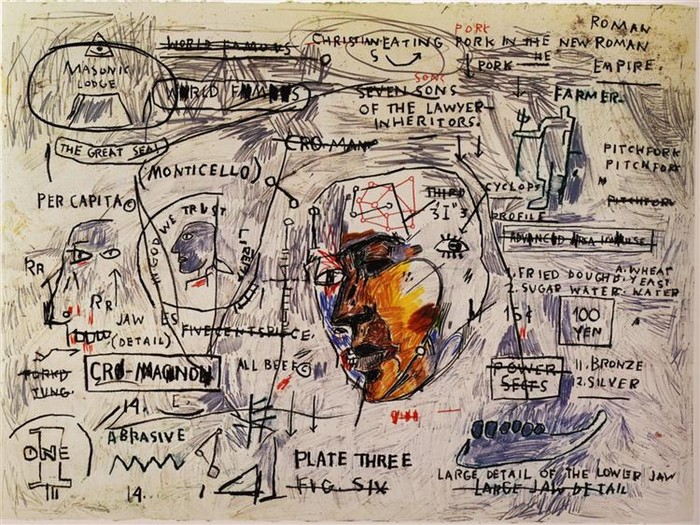 MASONIC
LODGE
WORLD FAMOUS
WORLD FAMOUS
THE GREAT SEAL
CHRISTIAN EATING
S
PORK
PORK IN THE NEW ROMAN
ROMAN
EMPIRE.
PORK THE
SONS
SEVEN SONS
OF THE LAWYER
INHERITORS.
FARMER.
CRO-MAN
(MONTICELLO)
PITCHFORK
PITCHFORK
PITCHFORK
PER CAPITA©
IN GOD WE TRUST
THIRD
"3I"3
CYCLOPS
PROFILE
RR
RR
JAW
(DETAIL)
FIVE CENTSPIECE.
1. FRIED DOUGH: A. WHEAT
YEAST
2. SUGAR WATER: WATER
15¢
100
YEN
CRO-MAGNON
ALL BEEF©
E.
POWER
SECTS
11. BRONZE
2. SILVER
14.
ONE
ABRASIVE
14.
PLATE THREE
FIG. SIX
LARGE DETAIL OF THE LOWER JAW
LARGE JAW DETAIL